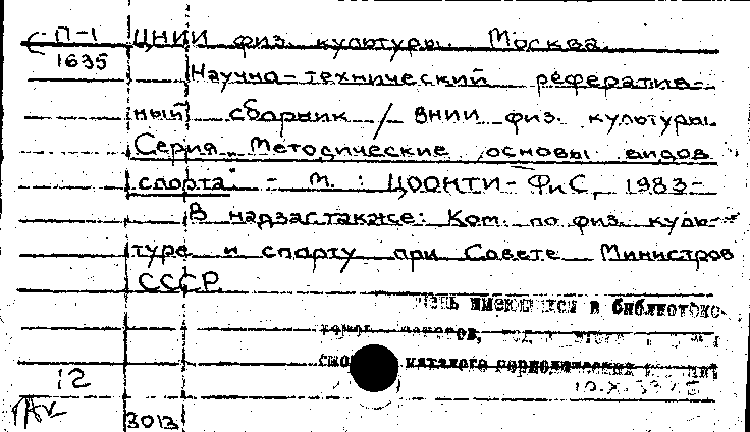 П-1 ЦНИИ физ. культуры. Москва.
1635
Научно-технический рефератив-
ный сборник / ВНИИ физ. культуры.
Серия "Методические основы видов
спорта" - М. : ЦООНТИ-ФиС, 1983-
В надзаг. также: Ком. по физ. куль-
туре и спорту при Совете Министров
СССР.
имеющихся в библиотеке
каталоге периодических
12
3013